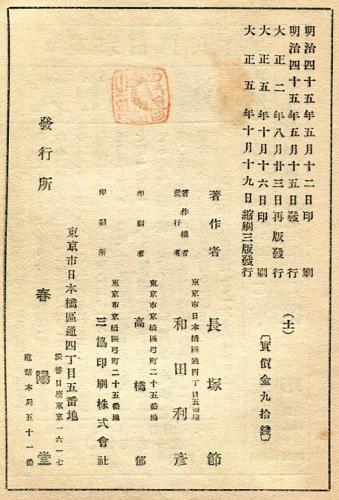 明治四十五年五月十二日印刷
明治四十五年五月十五日發行
大正二年八月廿三日再版發行
大正五年十月十六日印刷
大正五年十月十九日縮刷三版發行
(土)
〔實價金九拾錢〕
著作者 長塚節
東京市日本橋區通四丁目五番地
著作權者
發行者 和田利彥
東京市京橋區弓町二十五番地
印刷者 高橋郁
東京市京橋區弓町二十五番地
印刷所 三協印刷株式會社
東京市日本橋區通四丁目五番地
發行所 春陽堂
振替口座東京一六一七
電話本局五十一番